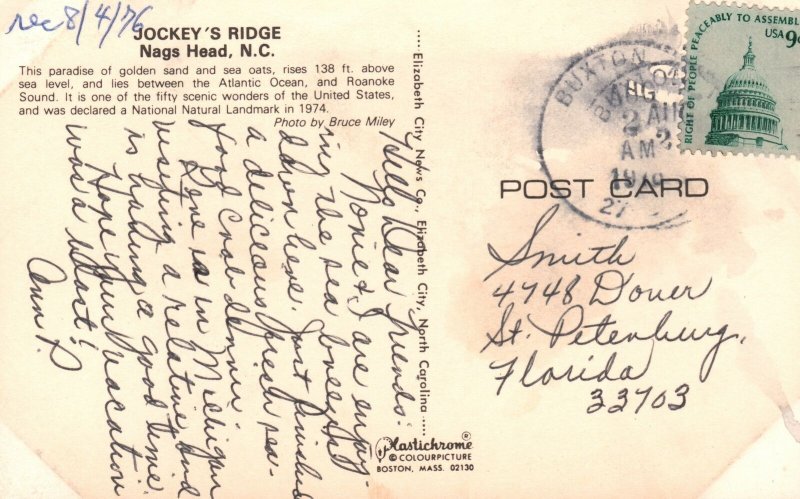 rec 8/4/76
JOCKEY'S RIDGE
Nags Head, N.C.
This paradise of golden sand and sea oats, rises 138 ft. above
sea level, and lies between the Atlantic Ocean, and Roanoke
Sound. It is one of the fifty scenic wonders of the United States,
and was declared a National Natural Landmark in 1974.
Photo by Bruce Miley
Hello Dear Friends:
Norie & I are enjoy-
ing the sea breezes
down here. Just finished
a delicious fresh sea-
food Crab dinner.
Gene is in Michigan
visiting a relative and
is having a good time.
Hope your vacation
was a blast!
Ann P.
Elizabeth City News Co., Elizabeth City, North Carolina
Plastichrome
© COLOURPICTURE
BOSTON, MASS. 02130
BUXTON
AUG
2
AM
AM
27
RIGHT OF PEOPLE PEACEABLY TO ASSEMBLE
USA 9c
POST CARD
Smith
4748 Dover
St. Petersburg,
Florida
33703